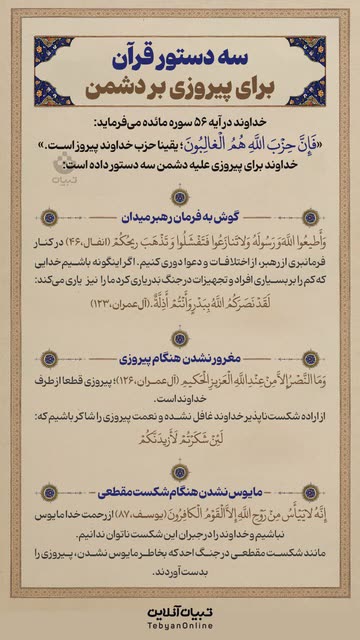 سه دستور قرآن
برای پیروزی بر دشمن
خداوند در آیه ۵۶ سوره مائده می‌فرماید:
«فَإِنَّ حِزْبَ اللَّهِ هُمُ الْغَالِبُونَ؛ یقینا حزب خداوند پیروز است.»
خداوند برای پیروزی علیه دشمن سه دستور داده است:
تبیان
گوش به فرمان رهبر میدان
وَأَطِيعُوا اللَّهَ وَرَسُولَهُ وَلَا تَنَازَعُوا فَتَفْشَلُوا وَتَذْهَبَ رِيحُكُمْ (انفال،۴۶) در کنار
فرمانبری از رهبر، از اختلافات و دعوا دوری کنیم. اگر اینگونه باشیم خدایی
که کم را بر بسیاری افراد و تجهیزات در جنگ بدر یاری کرد ما را نیز یاری می‌کند:
لَقَدْ نَصَرَكُمُ اللَّهُ بِبَدْرٍ وَأَنْتُمْ أَذِلَّةٌ. (آل‌عمران،۱۲۳)
مغرور نشدن هنگام پیروزی
وَمَا النَّصْرُ إِلَّا مِنْ عِنْدِ اللَّهِ الْعَزِيزِ الْحَكِيمِ (آل‌عمران،۱۲۶)؛ پیروزی قطعا از طرف
خداوند است.
از اراده شکست‌ناپذیر خداوند غافل نشده و نعمت پیروزی را شاکر باشیم که:
لَئِنْ شَكَرْتُمْ لَأَزِيدَنَّكُمْ
مایوس نشدن هنگام شکست مقطعی
إِنَّهُ لَا يَيْأَسُ مِنْ رَوْحِ اللَّهِ إِلَّا الْقَوْمُ الْكَافِرُونَ (یوسف،۸۷) از رحمت خدا مایوس
نباشیم و خداوند را در جبران این شکست ناتوان ندانیم.
مانند شکست مقطعی در جنگ احد که بخاطر مایوس نشدن، پیروزی را
بدست آوردند.
تبیان آنلاین
TebyanOnline